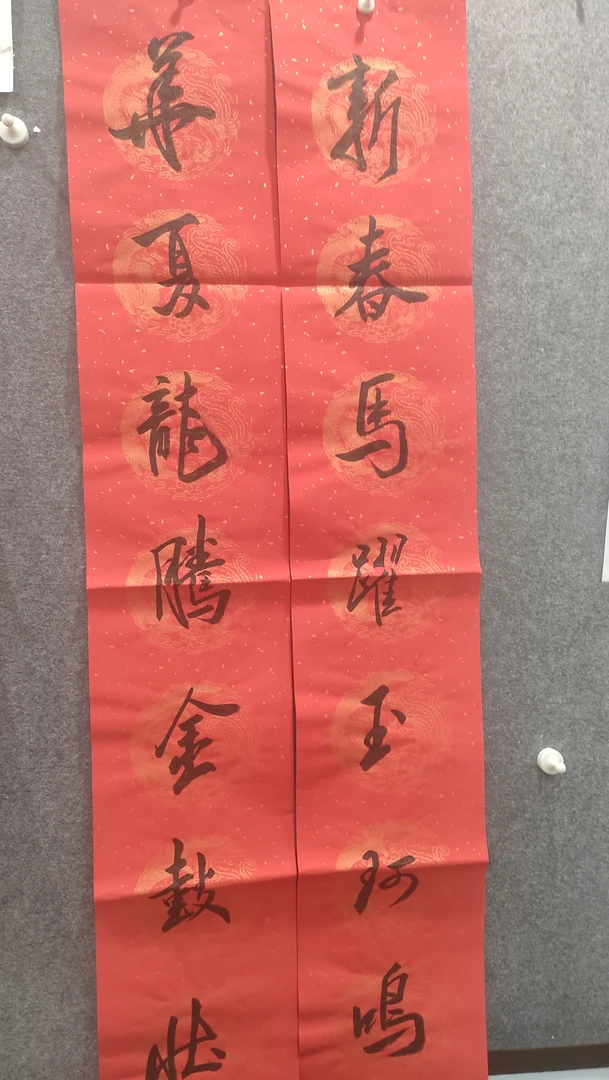 新春馬躍玉珂鳴
華夏龍騰金鼓壯